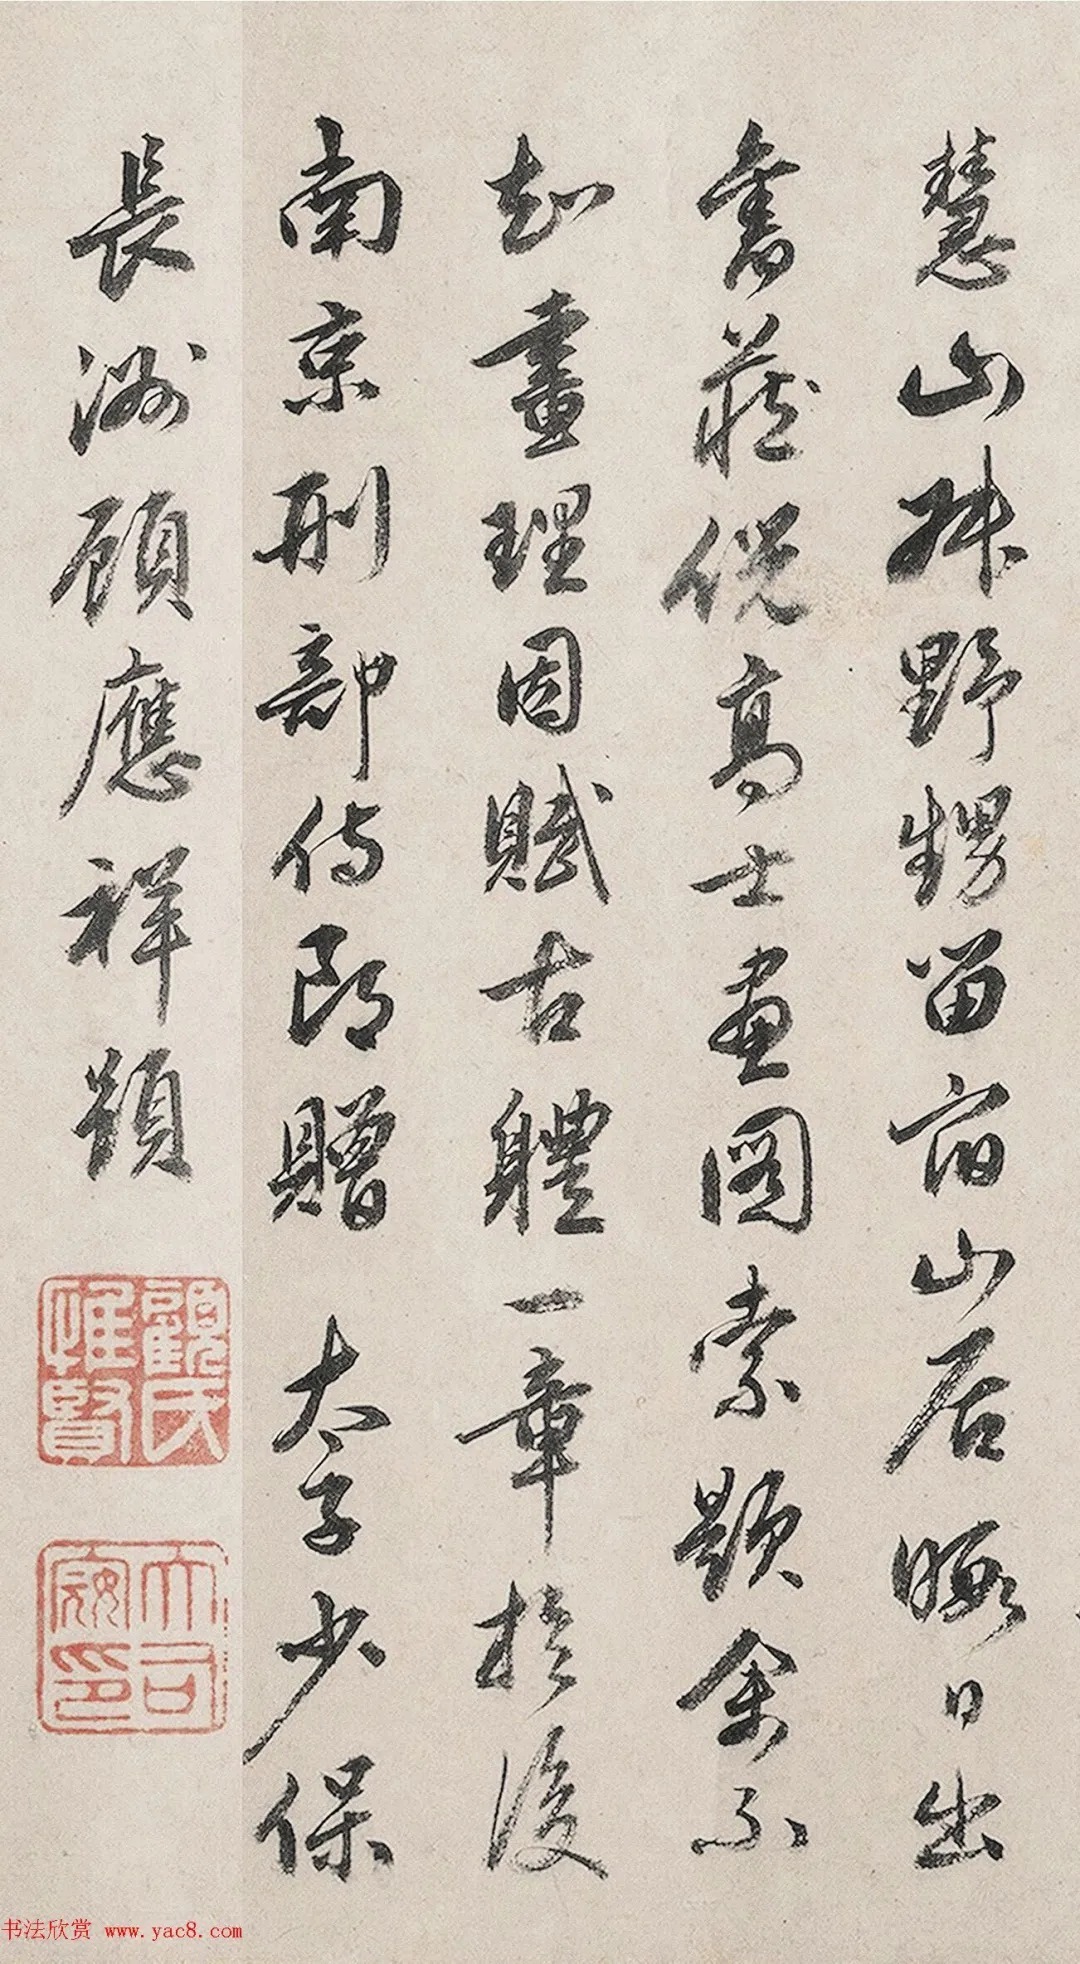 慧山叔野甥留宿山居暇日出
舊藏倪高士畫圖索題余不
知畫理因賦古體一章於後
南京刑部侍郎贈 太子少保
長洲顧應祥題
顧氏惟賢
大司寇印
书法欣赏 www.yac8.com